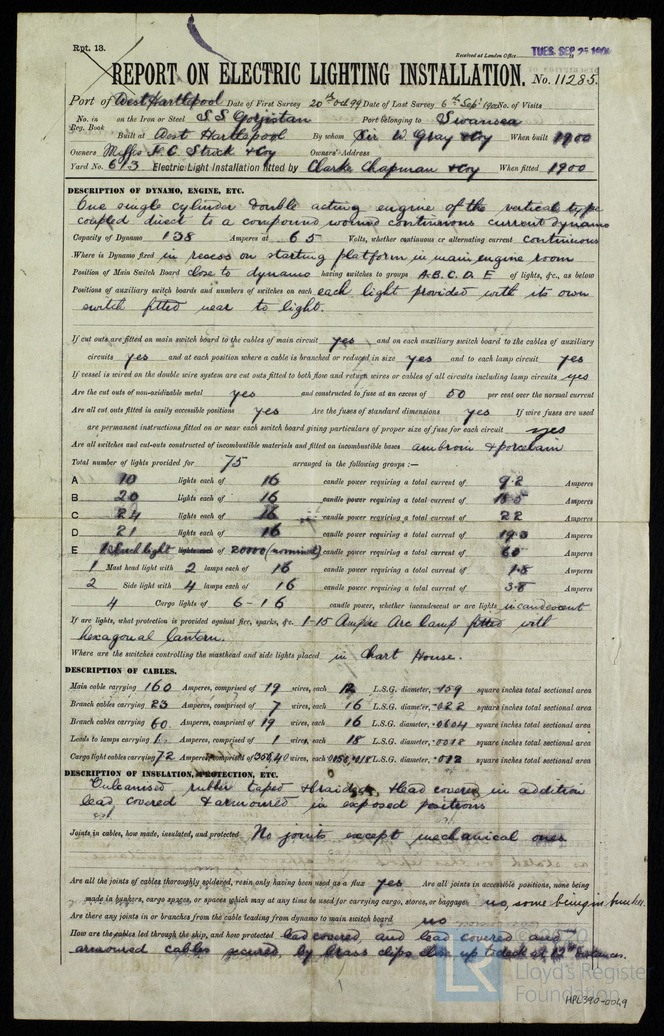 Rpt. 13.
Received at London Office TUES. SEP 25 1900
REPORT ON ELECTRIC LIGHTING INSTALLATION. No. 11285.
Port of West Hartlepool Date of First Survey 20th Oct 99 Date of Last Survey 6th Sepr 1900 No. of Visits
No. in Reg. Book on the Iron or Steel S.S. Golistan Port belonging to Swansea
Built at West Hartlepool By whom Sir W Gray & Coy When built 1900
Owners Messrs F. C. Strick & Coy Owners' Address
Yard No. 613 Electric Light Installation fitted by Clarke Chapman & Coy When fitted 1900
DESCRIPTION OF DYNAMO, ENGINE, ETC.
One single cylinder double acting engine of the vertical type
coupled direct to a compound wound continuous current dynamo
Capacity of Dynamo 138 Amperes at 65 Volts, whether continuous or alternating current continuous
Where is Dynamo fixed in recess on starting platform in main engine room
Position of Main Switch Board close to dynamo having switches to groups A.B.C.D.E of lights, &c., as below
Positions of auxiliary switch boards and numbers of switches on each each light provided with its own
switch fitted near to light.
If cut outs are fitted on main switch board to the cables of main circuit yes and on each auxiliary switch board to the cables of auxiliary
circuits yes and at each position where a cable is branched or reduced in size yes and to each lamp circuit yes
If vessel is wired on the double wire system are cut outs fitted to both flow and return wires or cables of all circuits including lamp circuits yes
Are the cut outs of non-oxidizable metal yes and constructed to fuse at an excess of 50 per cent over the normal current
Are all cut outs fitted in easily accessible positions yes Are the fuses of standard dimensions yes If wire fuses are used
are permanent instructions fitted on or near each switch board giving particulars of proper size of fuse for each circuit yes
Are all switches and cut-outs constructed of incombustible materials and fitted on incombustible bases ambroin & porcelain
Total number of lights provided for 75 arranged in the following groups :—
A 10 lights each of 16 candle power requiring a total current of 9.2 Amperes
B 20 lights each of 16 candle power requiring a total current of 18.5 Amperes
C 24 lights each of 16 candle power requiring a total current of 22 Amperes
D 21 lights each of 16 candle power requiring a total current of 19.3 Amperes
E 1 Search light lights each of 20000 (nominal) candle power requiring a total current of 60 Amperes
1 Mast head light with 2 lamps each of 16 candle power requiring a total current of 1.8 Amperes
2 Side light with 4 lamps each of 16 candle power requiring a total current of 3.8 Amperes
4 Cargo lights of 6-16 candle power, whether incandescent or arc lights incandescent
If arc lights, what protection is provided against fire, sparks, &c. 1-15 Ampere Arc lamp fitted with
hexagonal lantern.
Where are the switches controlling the masthead and side lights placed in Chart House.
DESCRIPTION OF CABLES.
Main cable carrying 160 Amperes, comprised of 19 wires, each 12 L.S.G. diameter, .159 square inches total sectional area
Branch cables carrying 23 Amperes, comprised of 7 wires, each 16 L.S.G. diameter, .022 square inches total sectional area
Branch cables carrying 60 Amperes, comprised of 19 wires, each 16 L.S.G. diameter, .0604 square inches total sectional area
Leads to lamps carrying 1. Amperes, comprised of 1 wires, each 18 L.S.G. diameter, .0018 square inches total sectional area
Cargo light cables carrying 7.2 Amperes, comprised of wires, each L.S.G. diameter, .012 square inches total sectional area
DESCRIPTION OF INSULATION, PROTECTION, ETC.
Vulcanised rubber taped & braided, & lead covered in addition
lead covered & armoured in exposed positions
Joints in cables, how made, insulated, and protected No joints except mechanical ones
Are all the joints of cables thoroughly soldered, resin only having been used as a flux yes Are all joints in accessible positions, none being
made in bunkers, cargo spaces, or spaces which may at any time be used for carrying cargo, stores, or baggage no, some being in bunkers.
Are there any joints in or branches from the cable leading from dynamo to main switch board no
How are the cables led through the ship, and how protected lead covered, and lead covered and
armoured cables secured, by brass clips close up to deck at 12" distances.
© 2020
LR
Lloyd's Register
Foundation
HPL390-0049